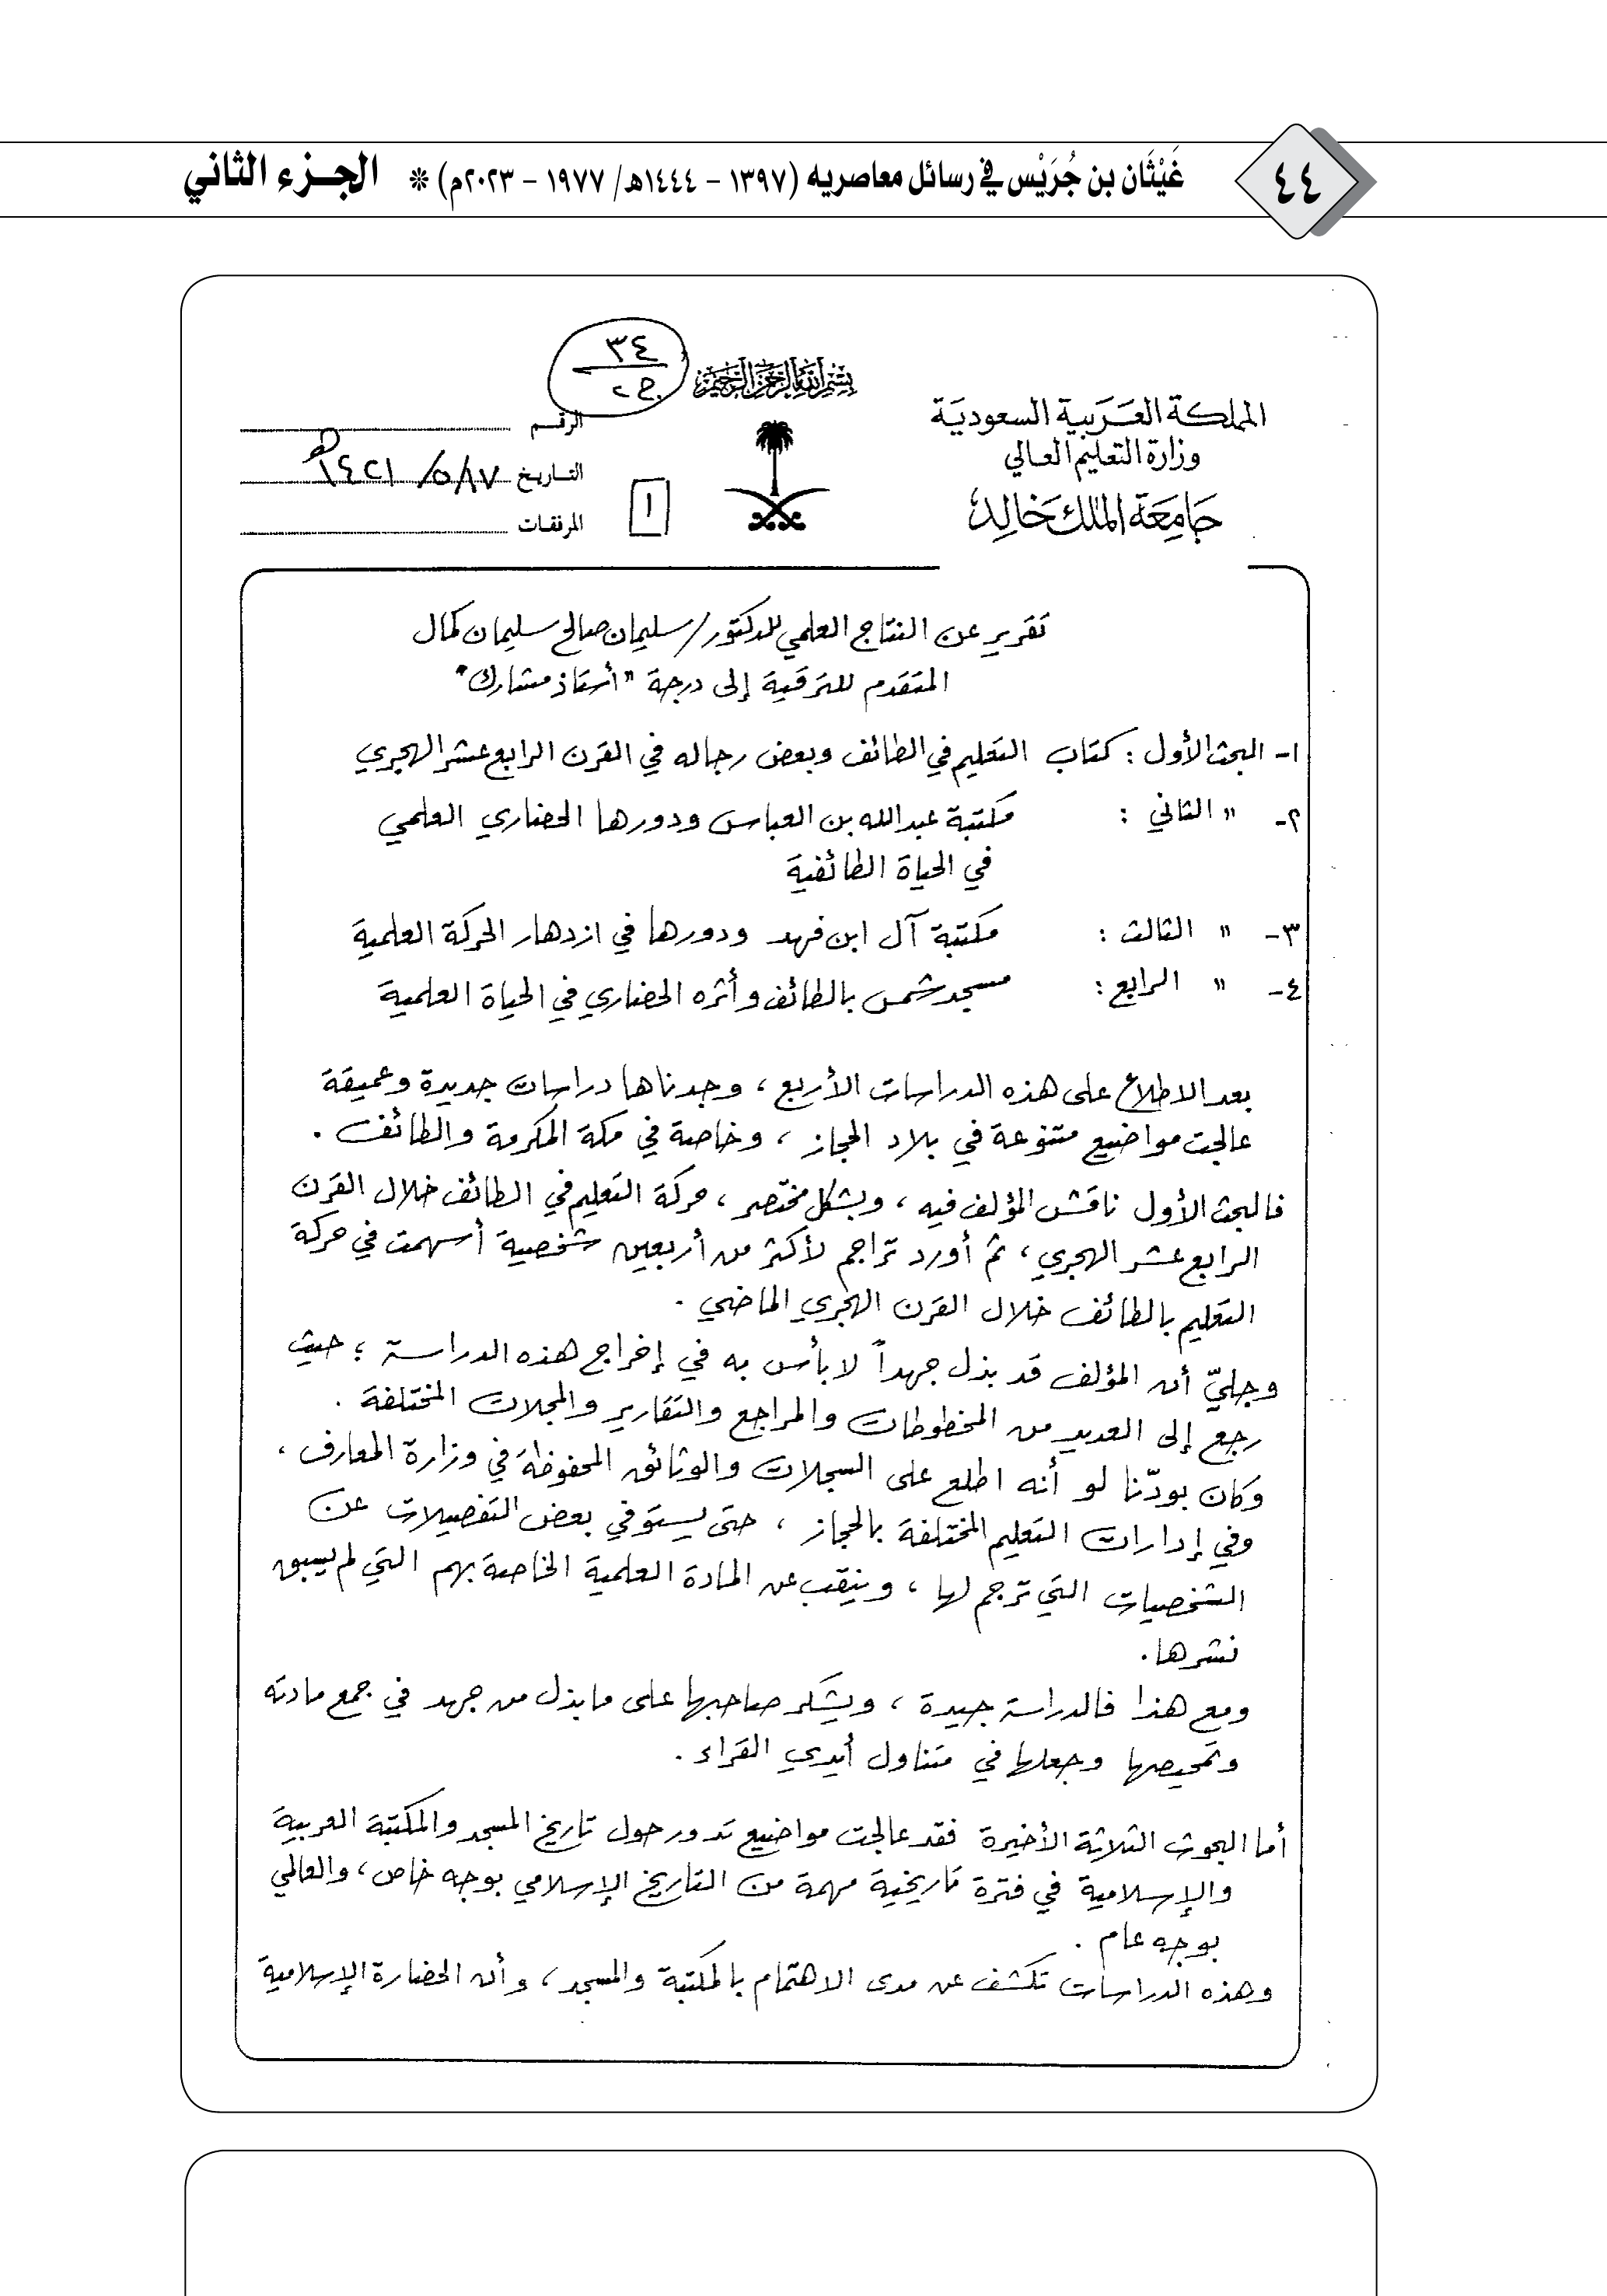 ٤٤
غَيْثَان بن جُرَيْس في رسائل معاصريه (١٣٩٧ - ١٤٤٤هـ/ ١٩٧٧ - ٢٠٢٣م) * الجـزء الثاني
٣٤
ج٢
بسم الله الرحمن الرحيم
المملكة العربية السعودية
وزارة التعليم العالي
جامعة الملك خالد
الرقم
التاريخ ٥/١٧/ ١٤٢١هـ
المرفقات
١
تقرير عن النتاج العلمي للدكتور/ سليمان صالح سليمان كمال
المتقدم للترقية إلى درجة "أستاذ مشارك"
١- البحث الأول : كتاب التعليم في الطائف وبعض رجاله في القرن الرابع عشر الهجري
٢- " الثاني : مكتبة عبدالله بن العباس ودورها الحضاري العلمي
في الحياة الطائفية
٣- " الثالث : مكتبة آل ابن فهد ودورها في ازدهار الحركة العلمية
٤- " الرابع : مسجد شمس بالطائف وأثره الحضاري في الحياة العلمية
بعد الاطلاع على هذه الدراسات الأربع ، وجدناها دراسات جديدة وعميقة
عالجت مواضيع متنوعة في بلاد الحجاز ، وخاصة في مكة المكرمة والطائف .
فالبحث الأول ناقش المؤلف فيه ، وبشكل مختصر ، حركة التعليم في الطائف خلال القرن
الرابع عشر الهجري ، ثم أورد تراجم لأكثر من أربعين شخصية أسهمت في حركة
التعليم بالطائف خلال القرن الهجري الماضي .
وجليّ أن المؤلف قد بذل جهداً لا بأس به في إخراج هذه الدراسة ؛ حيث
رجع إلى العديد من المخطوطات والمراجع والتقارير والمجلات المختلفة .
وكان بودّنا لو أنه اطلع على السجلات والوثائق المحفوظة في وزارة المعارف ،
وفي إدارات التعليم المختلفة بالحجاز ، حتى يستوفي بعض التفصيلات عن
الشخصيات التي ترجم لها ، وينقب عن المادة العلمية الخاصة بهم التي لم يسبق
نشرها .
ومع هذا فالدراسة جيدة ، ويشكر صاحبها على ما بذل من جهد في جمع مادته
وتمحيصها وجعلها في متناول أيدي القراء .
أما البحوث الثلاثة الأخيرة فقد عالجت مواضيع تدور حول تاريخ المسجد والمكتبة العربية
والإسلامية في فترة تاريخية مهمة من التاريخ الإسلامي بوجه خاص ، والعالمي
بوجه عام .
وهذه الدراسات تكشف عن مدى الاهتمام بالمكتبة والمسجد ، وأن الحضارة الإسلامية